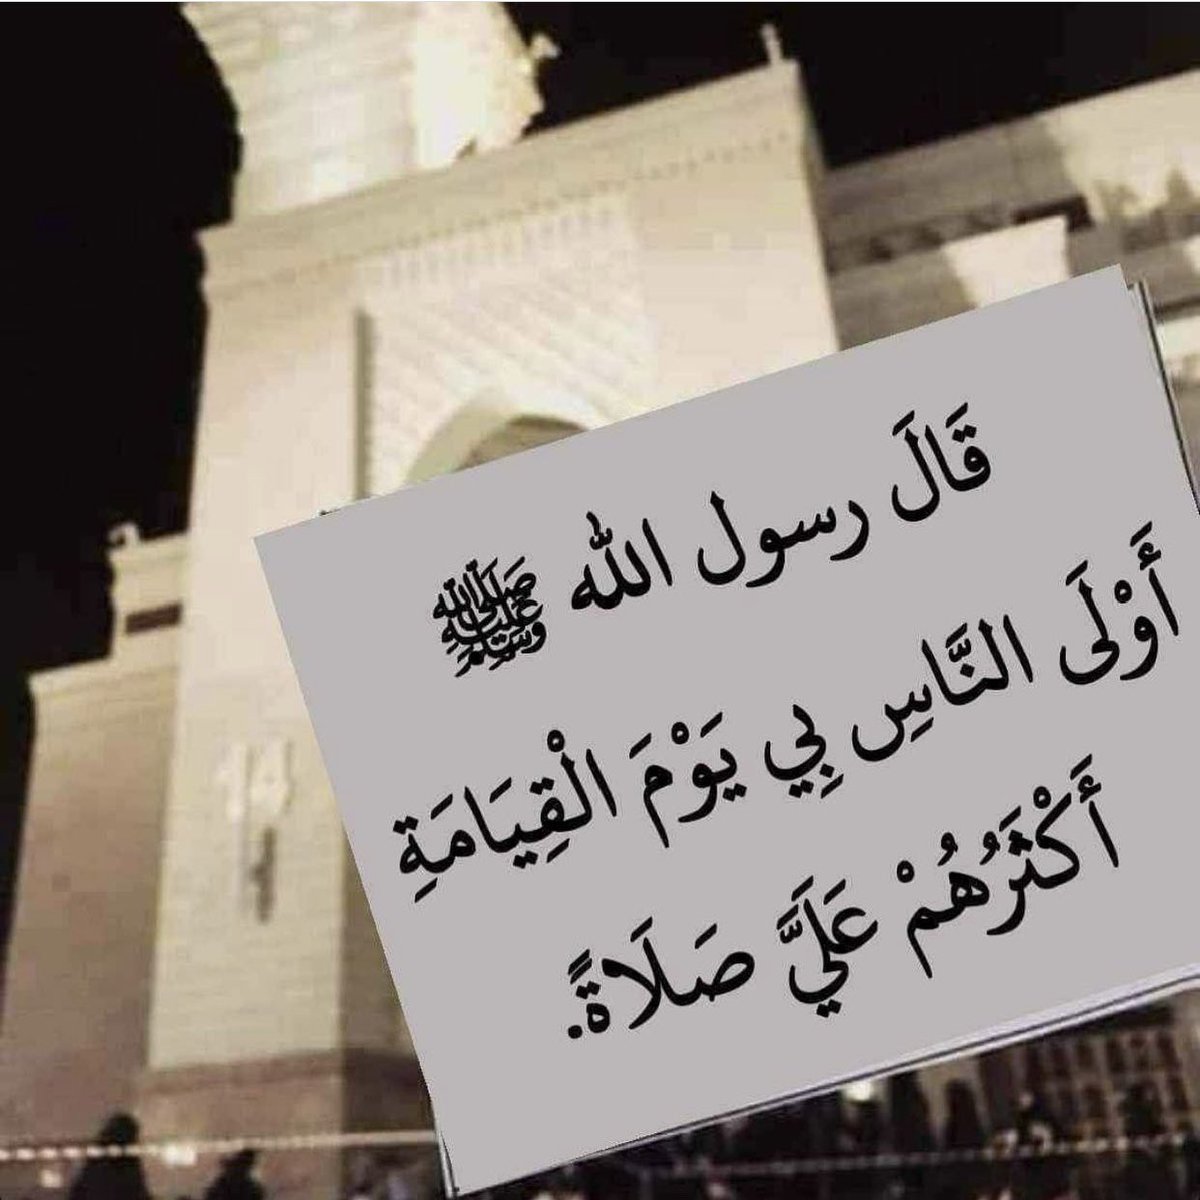 قَالَ رسول الله ﷺ
أَوْلَى النَّاسِ بِي يَوْمَ الْقِيَامَةِ
أَكْثَرُهُمْ عَلَيَّ صَلَاةً.